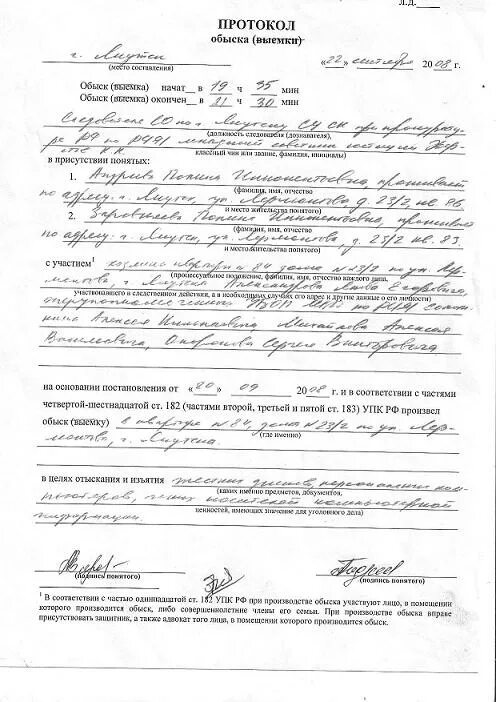 Л.Д.____
ПРОТОКОЛ
обыска (выемки)
г. Якутск «22» сентября 2008 г.
(место составления)
Обыск (выемка) начат в 19 ч 35 мин
Обыск (выемка) окончен в 21 ч 30 мин
Следователь СО по г. Якутску СУ СК при прокурату-
(должность следователя (дознавателя),
ре РФ по РС(Я) юстиции
классный чин или звание, фамилия, инициалы)
в присутствии понятых:
1. Иннокентьевна, проживает
(фамилия, имя, отчество
по адресу: г. Якутск, ул. Лермонтова д. 23/2, кв. 86
и место жительства понятого)
2. Иннокентьевна, проживает
(фамилия, имя, отчество
по адресу: г. Якутск, ул. Лермонтова, д. 23/2 кв. 83.
и место жительства понятого)
с участием¹ квартиры 84 дома №23/2 по ул. Лер-
(процессуальное положение, фамилия, имя, отчество каждого лица,
монтова, г. Якутска Александрова Егоровича,
участвовавшего в следственном действии, а в необходимых случаях его адрес и другие данные о его личности)
по РС(Я)
Алексея Николаевича, Михайлова Алексея
Васильевича, Сергея Викторовича
на основании постановления от «20» 09 2008 г. и в соответствии с частями
четвертой-шестнадцатой ст. 182 (частями второй, третьей и пятой ст. 183) УПК РФ произвел
обыск (выемку) в квартире №84, дома №23/2 по ул. Лер-
(где именно)
монтова, г. Якутска.
в целях отыскания и изъятия жестких дисков, персональных ком-
(каких именно предметов, документов,
пьютеров, носителей компьютерной
ценностей, имеющих значение для уголовного дела)
информации.
(подпись понятого) (подпись понятого)
¹ В соответствии с частью одиннадцатой ст. 182 УПК РФ при производстве обыска участвуют лицо, в помещении
которого производится обыск, либо совершеннолетние члены его семьи. При производстве обыска вправе
присутствовать защитник, а также адвокат того лица, в помещении которого производится обыск.